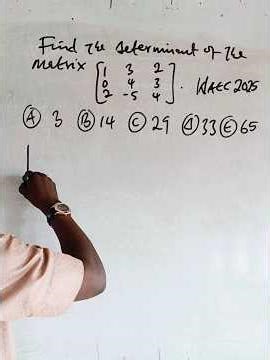 Find the determinant of the
matrix [1 3 2
0 4 3
2 -5 4]. WAEC 2025
Ⓐ 3 Ⓑ 14 Ⓒ 29 Ⓓ 33 Ⓔ 65